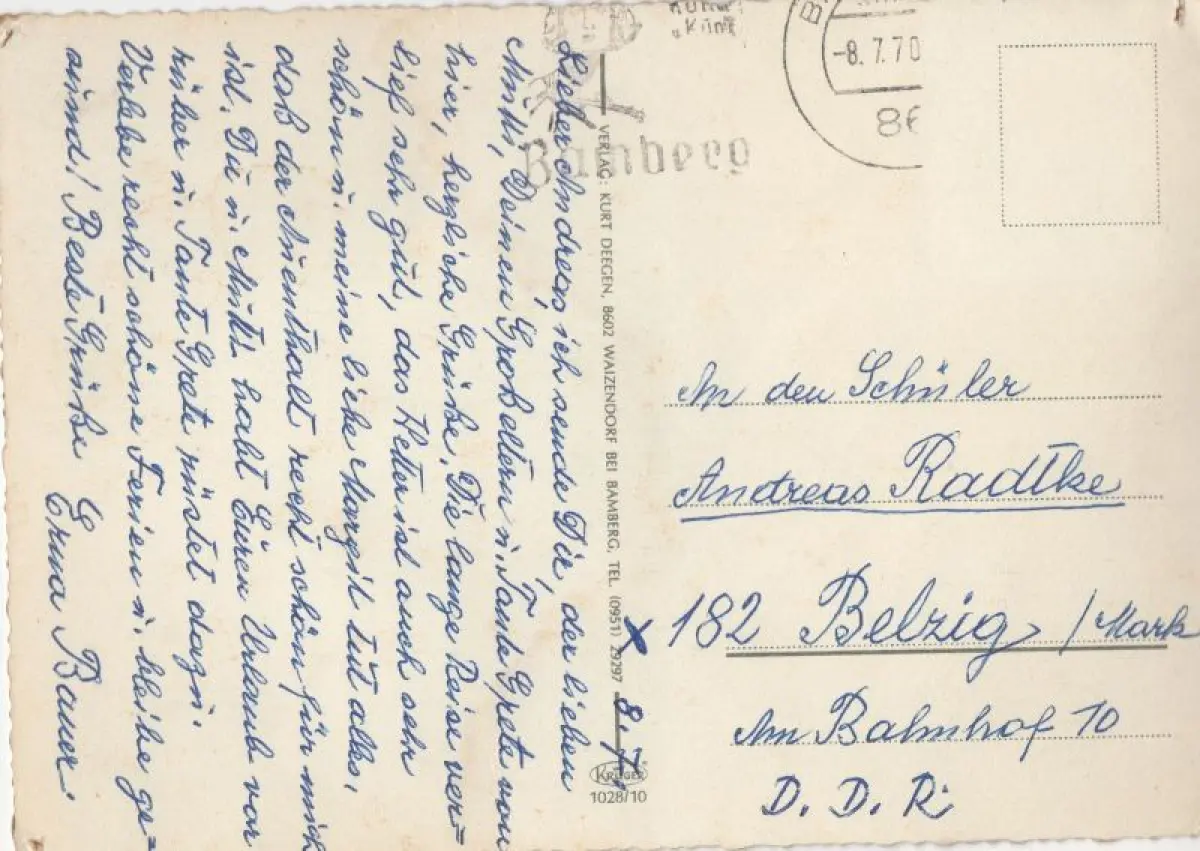 Lieber Andreas, ich sende Dir, der lieben
Mutti, Deinen Großeltern u. Tante Grete von
hier, herzliche Grüße. Die lange Reise ver=
lief sehr gut, das Wetter ist auch sehr
schön u. meine liebe Margit tut alles,
daß der Aufenthalt recht schön für mich
ist. Du u. Mutti habt Euren Urlaub vor
rüber u. Tante Grete rüstet dazu.
Verlebe recht schöne Ferien u. bleibe ge=
sund! Beste Grüße
Erna Bauer.
VERLAG: KURT DEEGEN, 8602 WAIZENDORF BEI BAMBERG, TEL. (0951) 29297
KRÜGER
1028/10
Bamberg
-8.7.70
86
An den Schüler
Andreas Radtke
182 Belzig /Mark
Am Bahnhof 10
D. D. R.